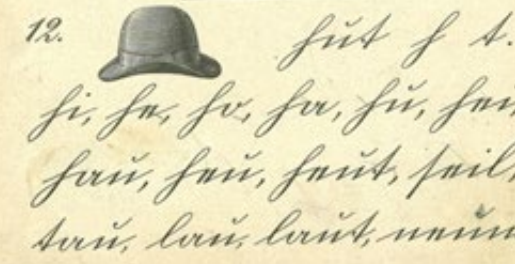 12. hut h t.
hi, he, ho, ha, hu, hei,
hau, heu, heut, seil,
tau, lau, laut, neun